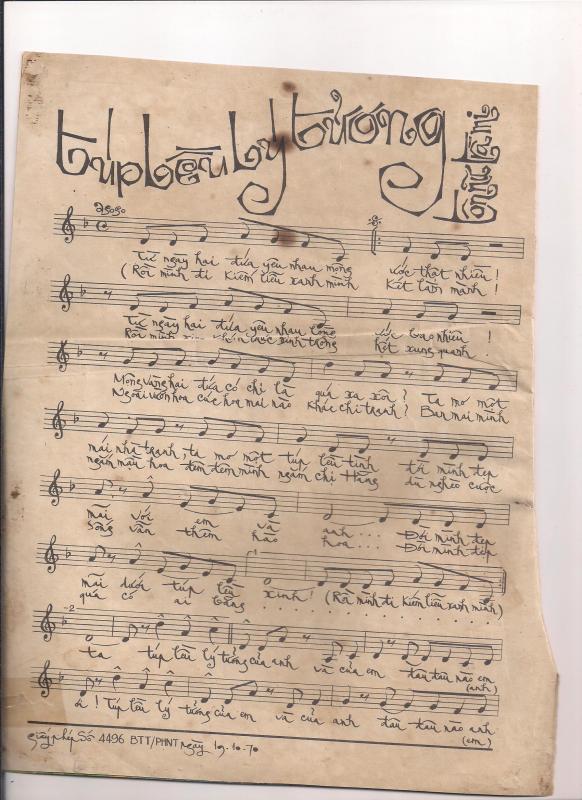 túp lều lý tưởng
agogo
Từ ngày hai đứa yêu nhau mộng ước thật nhiều !
(Rồi mình đi kiếm liễu xanh mình kết làm mành !
Từ ngày hai đứa yêu nhau lòng ước bao nhiêu !
Rồi mình xin mùa xuân xinh trồng hốt xung quanh .
Mộng vàng hai đứa có chi là quá xa xôi ? Ta mơ một
Ngoài vườn hoa cúc hoa mai nào khác chi tranh ? Ban mai mình
mái nhà tranh, ta mơ một túp lều tình đời mình đẹp
ngắm mầu hoa đêm đêm mình ngắm chị Hằng dù nghèo cuộc
mãi với em và anh ... Đời mình đẹp
sống vẫn thêm hào hoa ... Đời mình đẹp
mãi dưới túp lều xinh ! (Rồi mình đi kiếm liễu xanh mình)
quá có ai bằng . . . . . . . . .
ta túp lều lý tưởng của anh và của em đâu đâu nào em
(anh)
ơi ! Túp lều lý tưởng của em và của anh đâu đâu nào anh
(em)
giấy phép số 4496 BTT/PHNT ngày 19-10-70